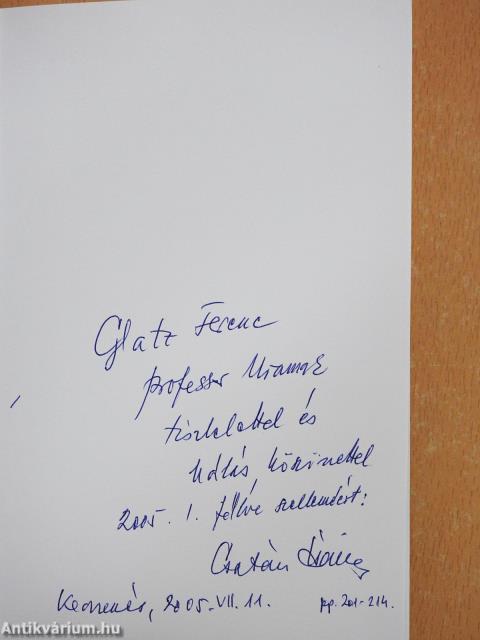 Glatz Ferenc
professor Uramnak
tisztelettel és
hálás köszönettel
2005. I. féléve szellemiért:
Csatári
Kecskemét, 2005. VII. 11.
pp. 201-214.
Antikvárium.hu